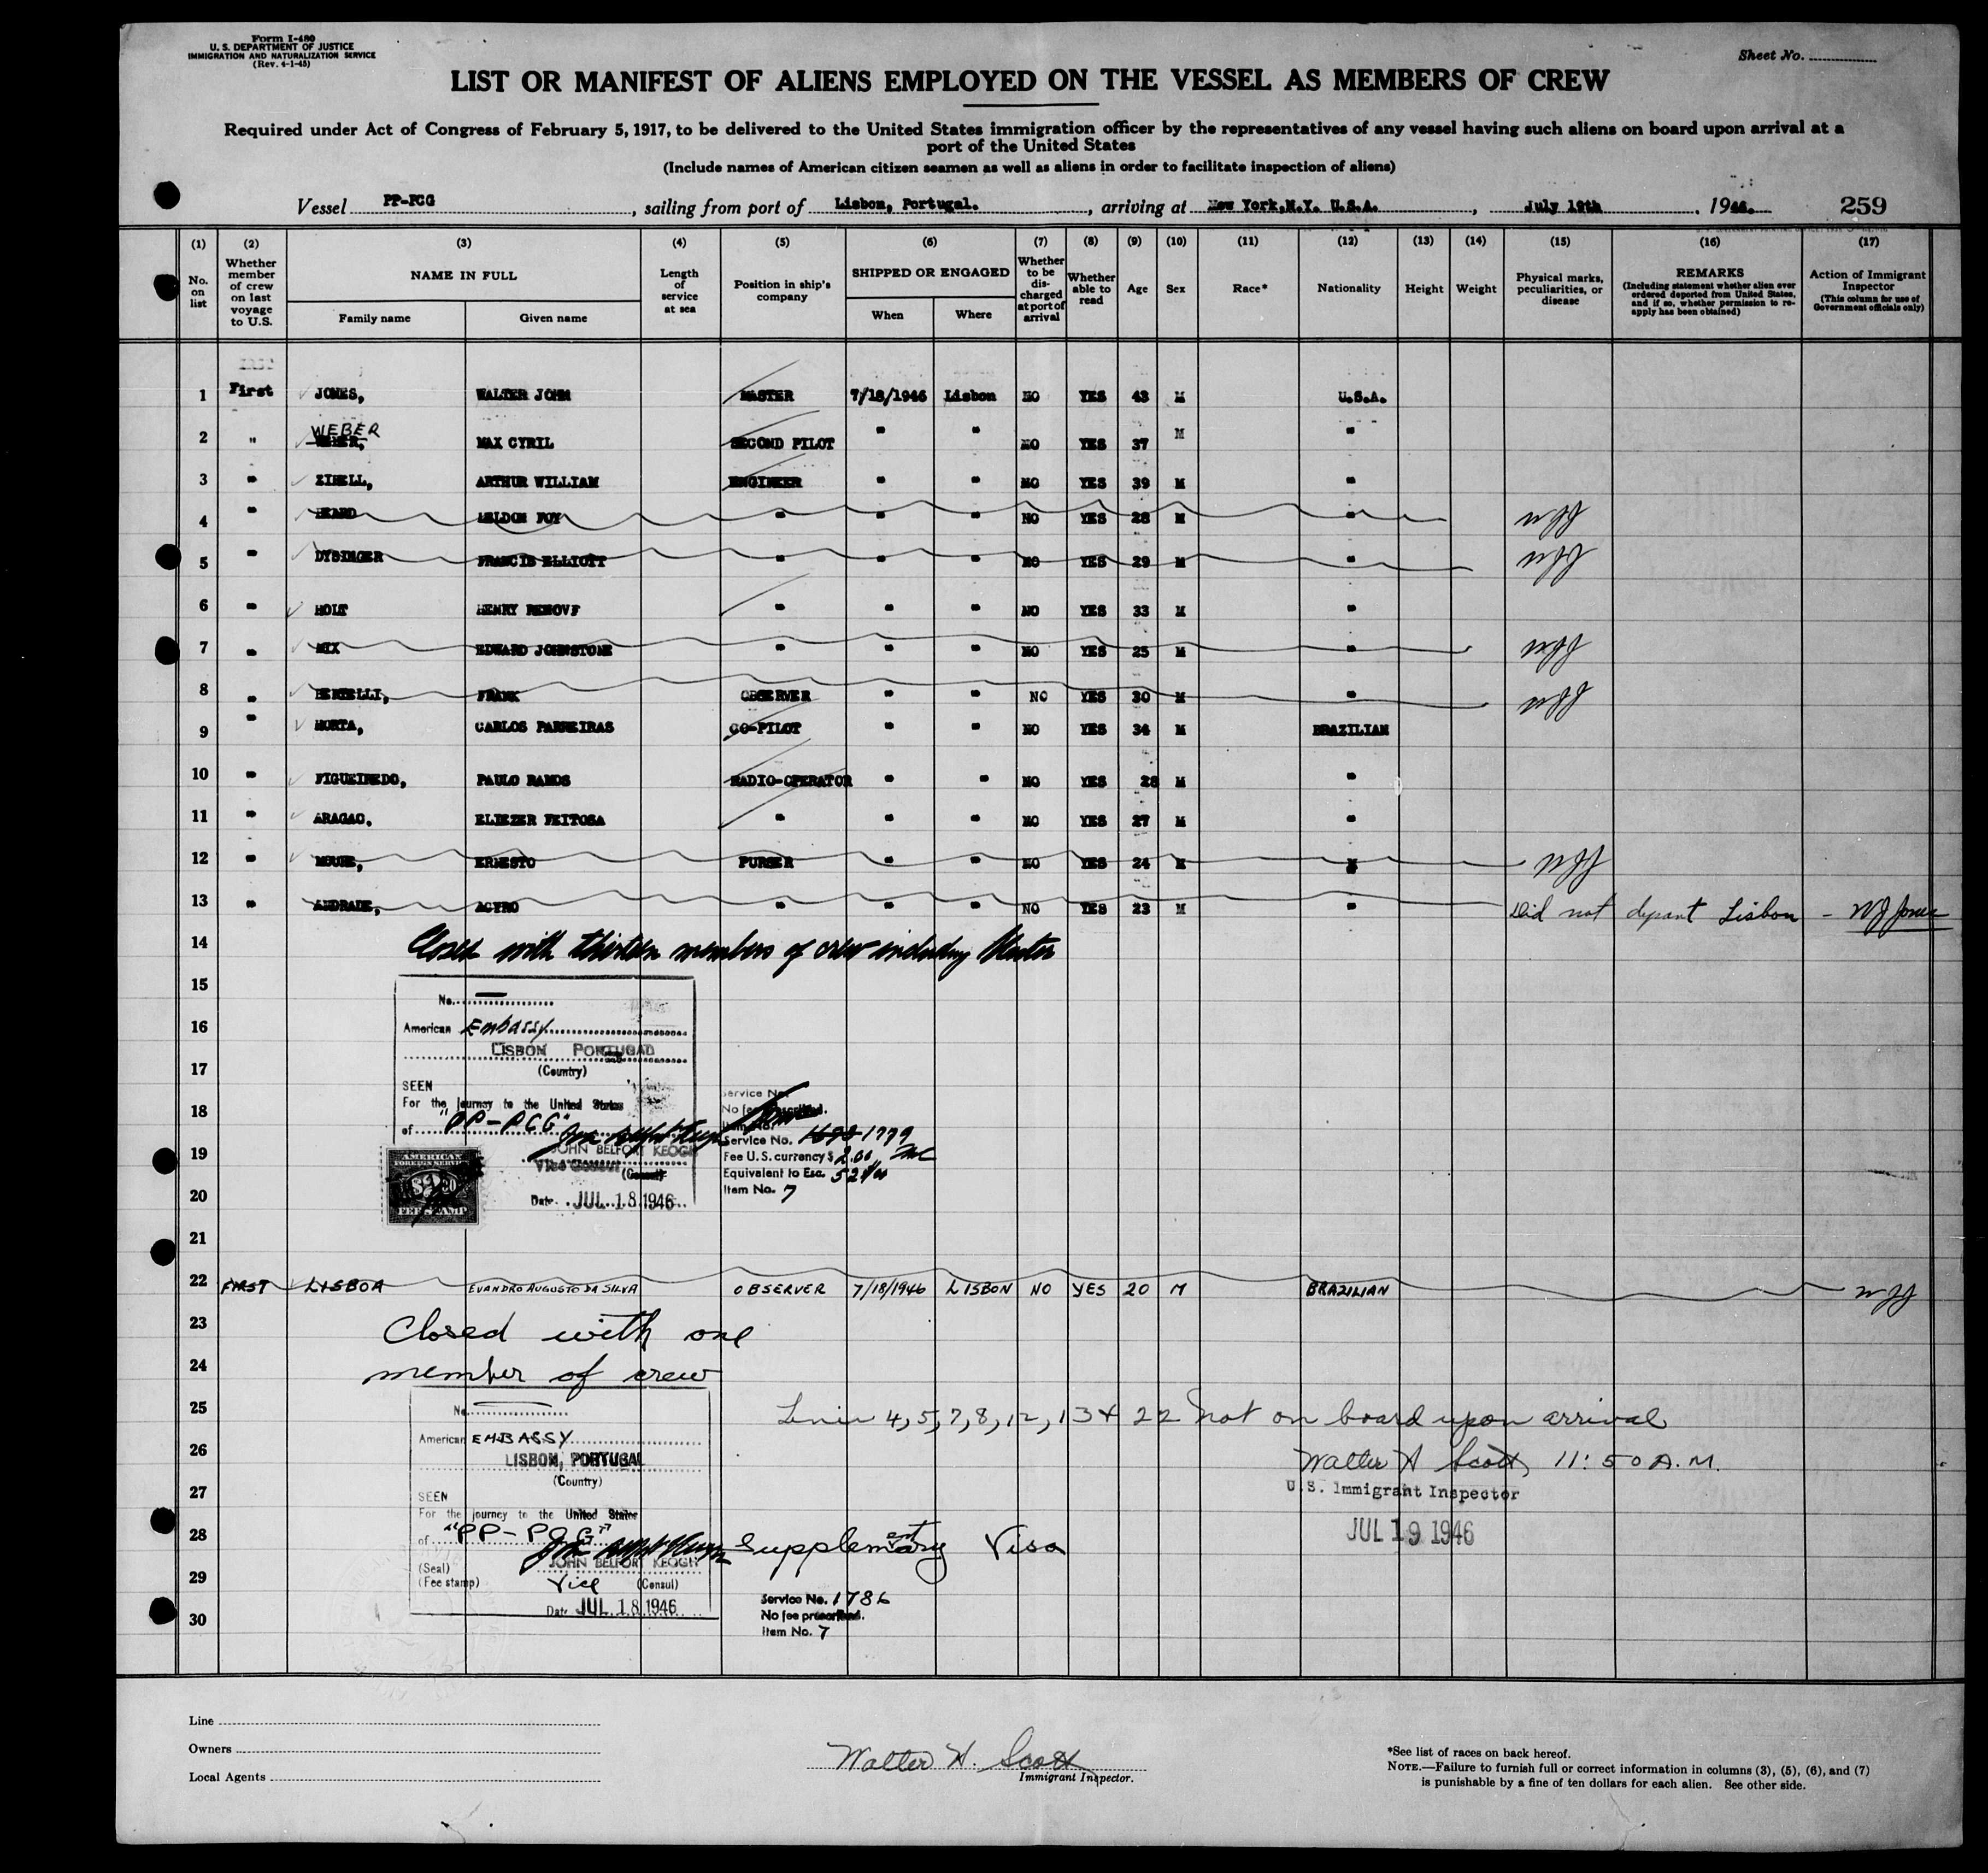 Form I-480
U. S. DEPARTMENT OF JUSTICE
IMMIGRATION AND NATURALIZATION SERVICE
(Rev. 4-1-45)
Sheet No.
LIST OR MANIFEST OF ALIENS EMPLOYED ON THE VESSEL AS MEMBERS OF CREW
Required under Act of Congress of February 5, 1917, to be delivered to the United States immigration officer by the representatives of any vessel having such aliens on board upon arrival at a
port of the United States
(Include names of American citizen seamen as well as aliens in order to facilitate inspection of aliens)
Vessel PP-PCG, sailing from port of Lisbon, Portugal., arriving at New York,N.Y. U.S.A., July 19th, 1946. 259
(1) (2) (3) (4) (5) (6) (7) (8) (9) (10) (11) (12) (13) (14) (15) (16) (17)
No. on list
Whether member of crew on last voyage to U.S.
NAME IN FULL
Family name
Given name
Length of service at sea
Position in ship's company
SHIPPED OR ENGAGED
When
Where
Whether to be discharged at port of arrival
Whether able to read
Age
Sex
Race*
Nationality
Height
Weight
Physical marks, peculiarities, or disease
REMARKS
(Including statement whether alien ever ordered deported from United States, and if so, whether permission to reapply has been obtained)
Action of Immigrant Inspector
(This column for use of Government officials only)
1 First JONES, WALTER JOHN MASTER 7/18/1946 Lisbon NO YES 43 M U.S.A.
WEBER
2 " MAX CYRIL SECOND PILOT " " NO YES 37 M "
3 " ZIBELL, ARTHUR WILLIAM ENGINEER " " NO YES 39 M "
4 " HEARD WELDON FOY " " " NO YES 28 M " WJJ
5 " DYSINGER FRANCIS ELLIOTT " " " NO YES 29 M " WJJ
6 " HOLT HENRY " " " NO YES 33 M "
7 " MIX EDWARD JOHNSTONE " " " NO YES 25 M " WJJ
8 " BERTELLI, FRANK OBSERVER " " NO YES 30 M " WJJ
9 " HORTA, CARLOS PARREIRAS CO-PILOT " " NO YES 34 M BRAZILIAN
10 " FIGUEIREDO, PAULO RAMOS RADIO-OPERATOR " " NO YES 28 M "
11 " ARAGAO, ELIEZER FEITOSA " " " NO YES 27 M "
12 " ERNESTO PURSER " " NO YES 24 M " WJJ
13 " ANDRADE, ACYRO " " " NO YES 23 M " Did not depart Lisbon - WJ Jones
14 Closed with thirteen members of crew including Master
15
No.
16
American Embassy
LISBON PORTUGAL
17
(Country)
SEEN
For the journey to the United States
18
of "PP-PCG"
Service No.
No fee prescribed.
Item No.
Service No. 1779
19
JOHN BELFORT KEOGH
Vice Consul (Consul)
Fee U.S. currency $ 2.00
Equivalent to Esc.
Item No. 7
AMERICAN
FOREIGN SERVICE
FEE STAMP
20
Date JUL 18 1946
21
22 FIRST LISBOA EVANDRO AUGUSTO DA SILVA OBSERVER 7/18/1946 LISBON NO YES 20 M BRAZILIAN WJJ
23 Closed with one
24 member of crew
25 Lines 4, 5, 7, 8, 12, 13 & 22 not on board upon arrival
No.
26
American EMBASSY
LISBON, PORTUGAL
(Country)
Walter H Scott, 11:50 A.M.
27
U.S. Immigrant Inspector
SEEN
For the journey to the United States
28
of "PP-PCG"
JUL 19 1946
Supplementary Visa
29
JOHN BELFORT KEOGH
(Seal)
(Fee stamp)
Vice (Consul)
30
Date JUL 18 1946
Service No. 1786
No fee prescribed.
Item No. 7
Line
Owners
Local Agents
Walter H. Scott
Immigrant Inspector.
*See list of races on back hereof.
NOTE.—Failure to furnish full or correct information in columns (3), (5), (6), and (7)
is punishable by a fine of ten dollars for each alien. See other side.